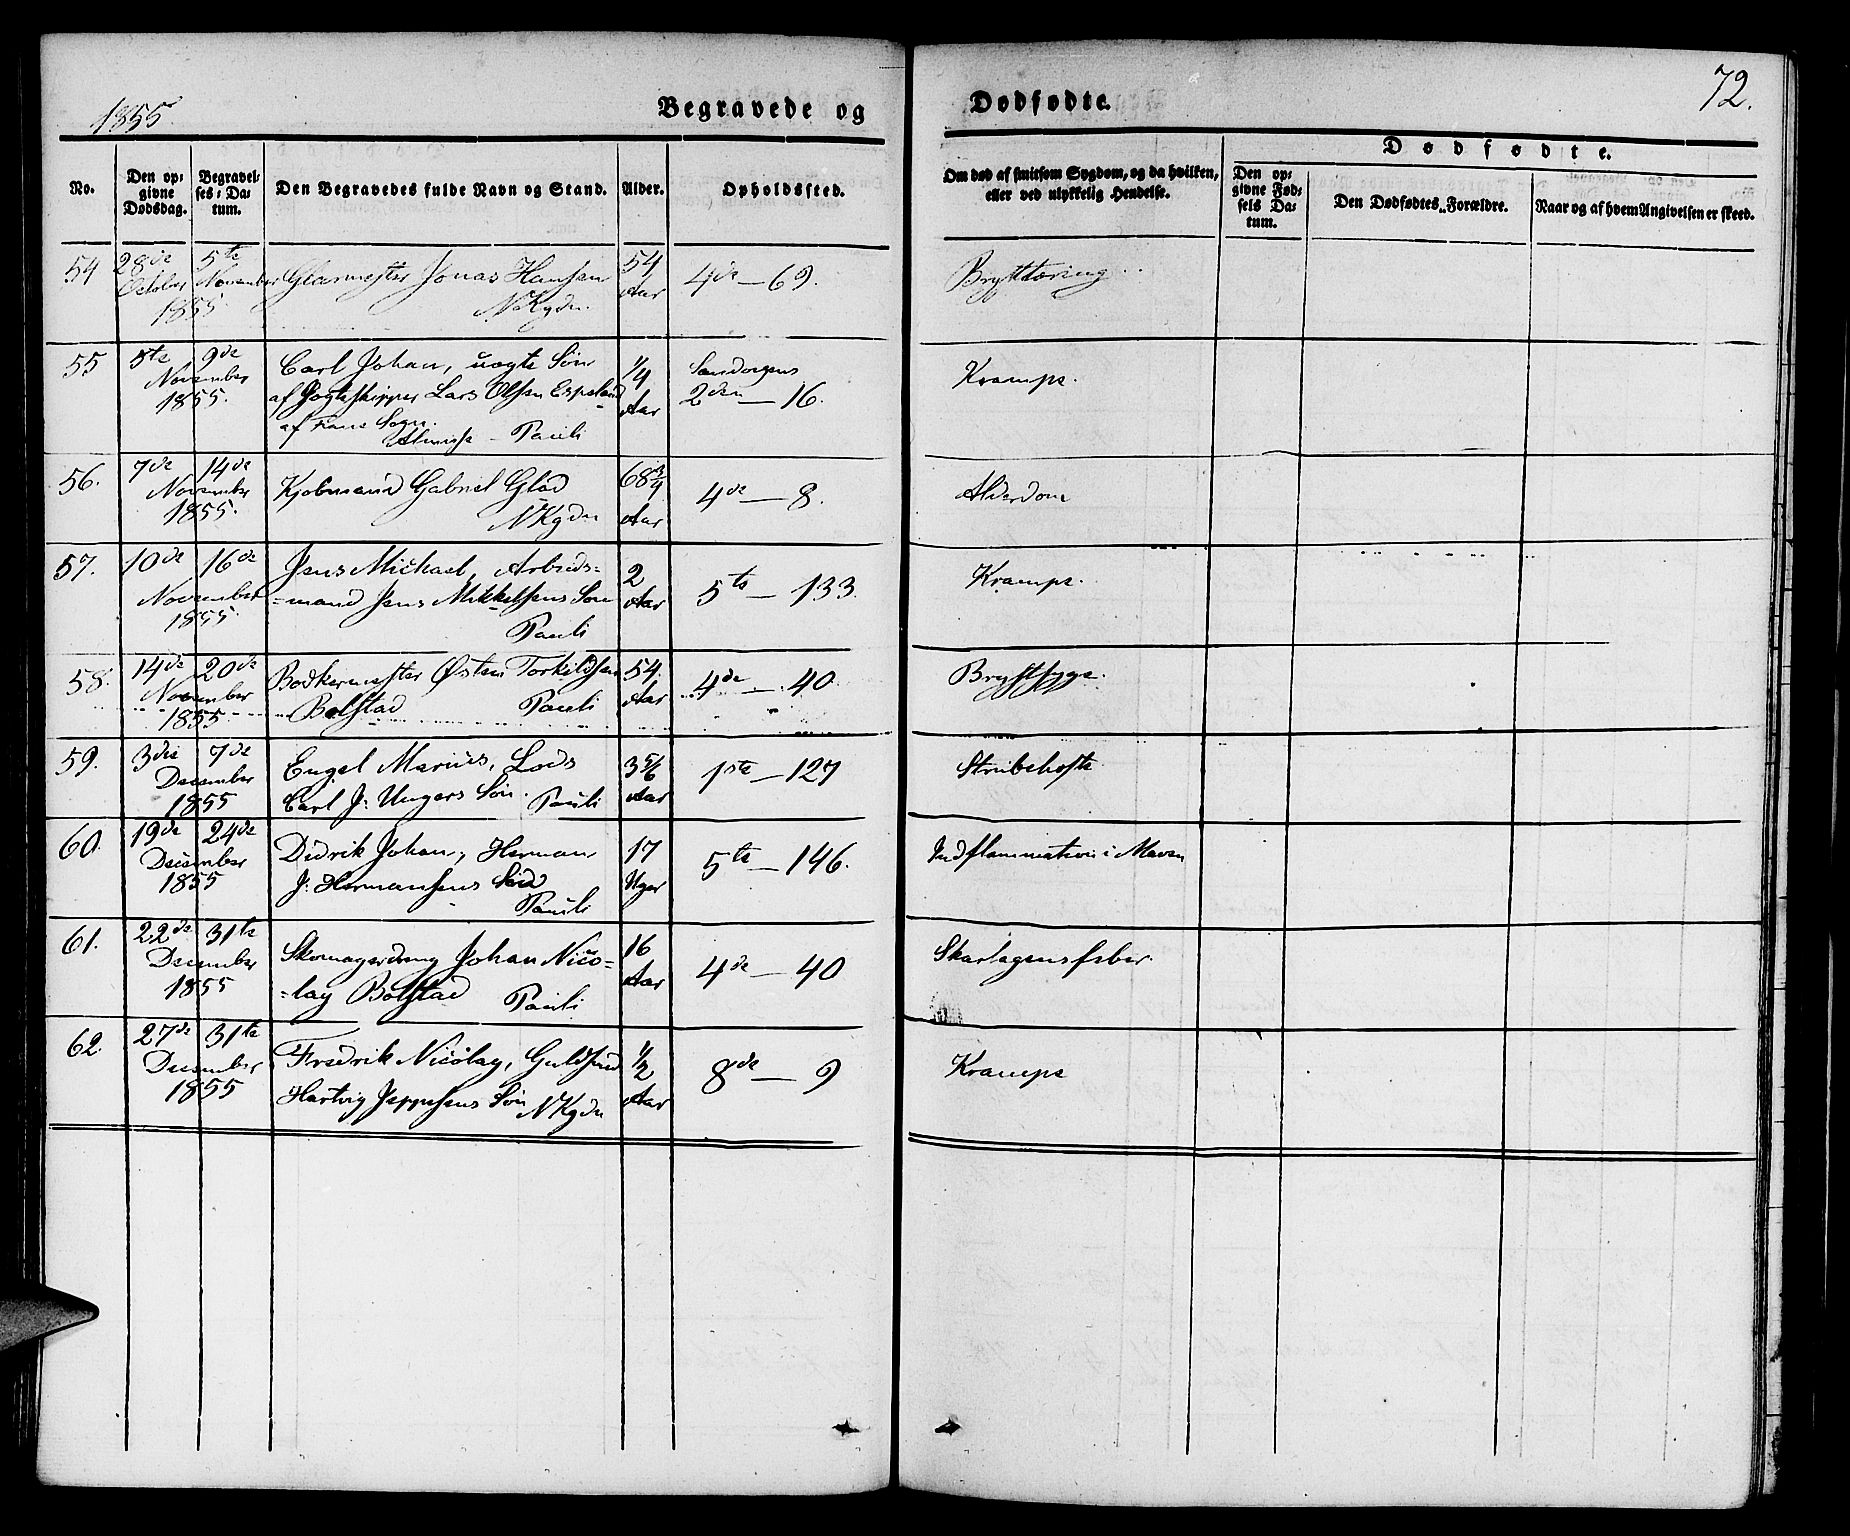 1855
Begravede og
Dødfødte.
72.
No.
Den op-
givne
Dødsdag.
Begravel-
ses-Da-
tum.
Den Begravedes fulde Navn og Stand.
Alder.
Opholdssted.
Om død af smitsom Sygdom, og da hvilken,
eller ved ulykkelig Hendelse.
Dødfødte.
Den op-
givne Fød-
sels Da-
tum.
Den Dødfødtes Forældre.
Naar og af hvem Angivelsen er skeed.
54 28de 5te Glarmester Jonas Hansen 54 4de — 69. Brysttæring
October November Aar
1855 NKgdn.
55 5te 9de Carl Johan, uægte Søn 1/4 Kramper.
November af Jagtskipper Lars Olsen Espeland Aar 2den — 16.
1855. af Sogn.
Pauli
56. 7de 14de Kjøbmand Gabriel Glad 68 3/4 4de — 8. Alderdom
November NKgdn Aar
1855.
57. 10de 16de Jens Michael, Arbeids- 2 5te — 133. Krampe.
November =mand Jens Mikkelsens Søn Aar
1855. Pauli
58. 14de 20de Bødkermester Østen Torkildsen 54. 4de — 40. Brystsyge.
November Bolstad Pauli Aar
1855
59. 3die 7de Engel Marius, Lods 3 5/6 1ste — 127 Strubehoste
December Carl J: Ungers Søn. Pauli Aar
1855
60. 19de 24de Didrik Johan, Herman 17 5te — 146. Indflammation i Maven
December J: Hermansens Søn Uger
1855 Pauli
61. 22de 31te Skomagerdreng Johan Nico- 16 4de — 40 Skarlagensfeber.
December =lay Bolstad Pauli Aar
1855
62. 27de 31te Fredrik Nicolay, Guldsmed 1/2 8de — 9 Krampe
December Hartvig Jeppesens Søn NKgdn Aar
1855